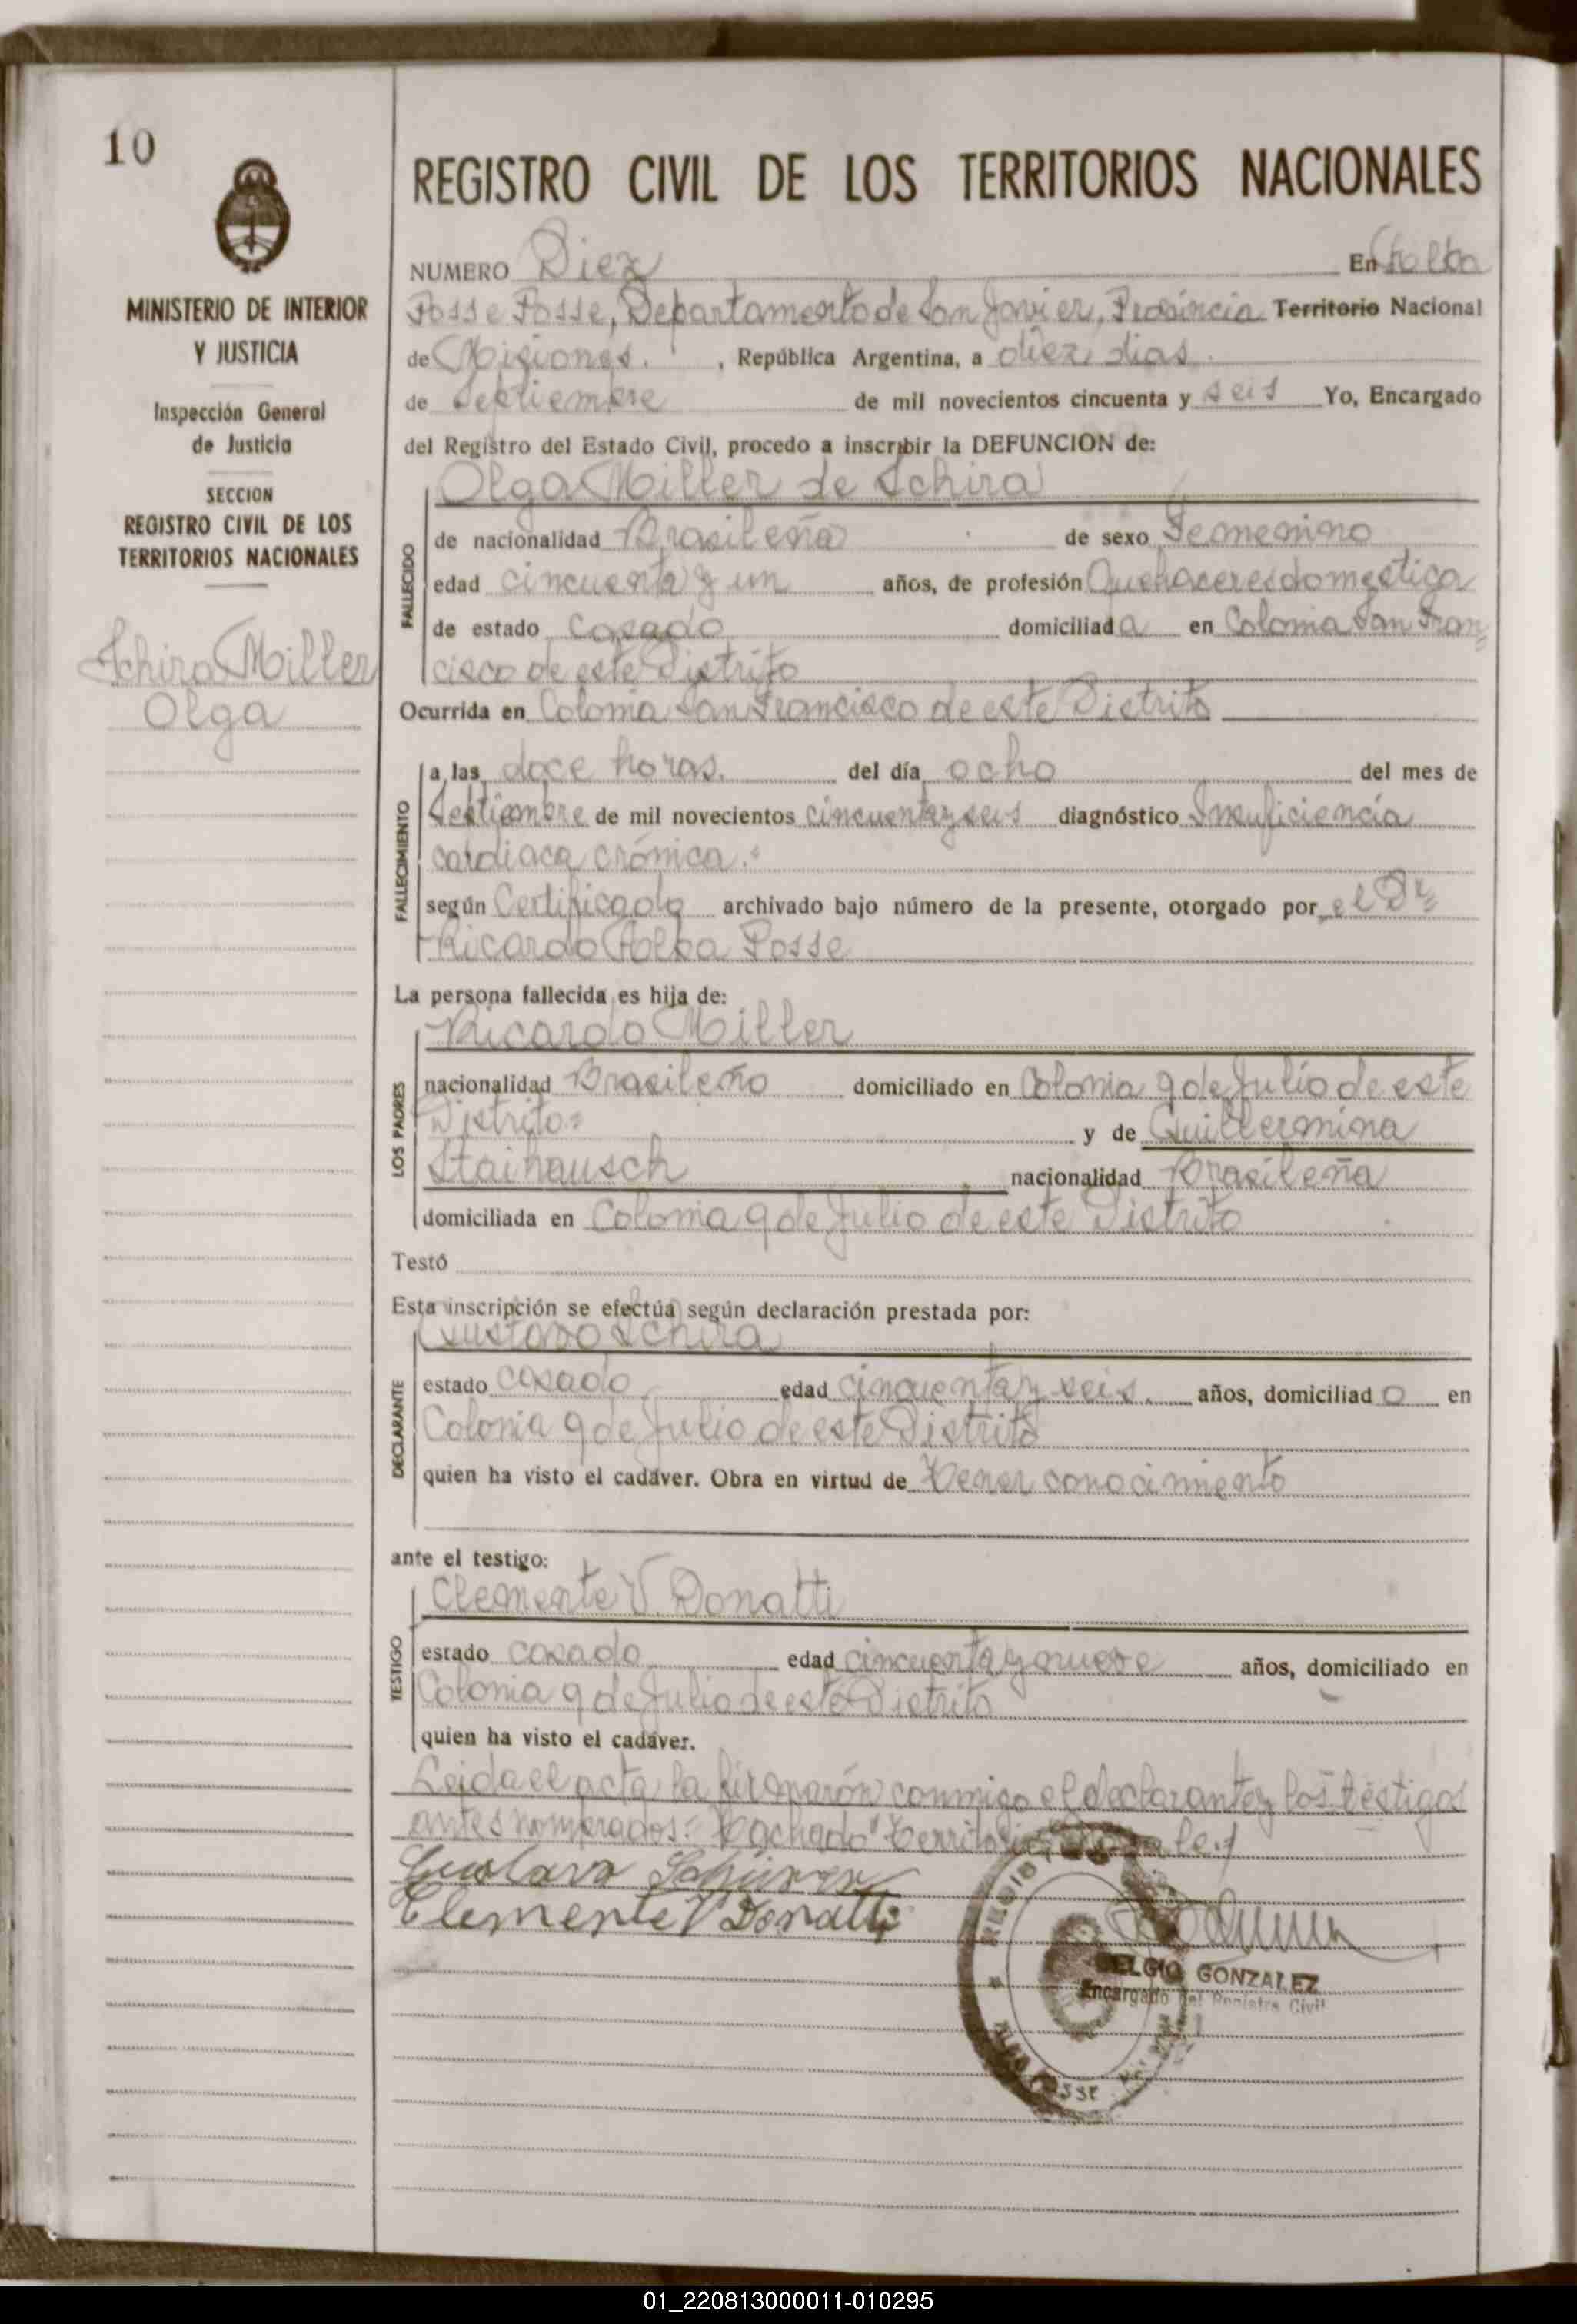 10
MINISTERIO DE INTERIOR
Y JUSTICIA
Inspección General
de Justicia
SECCION
REGISTRO CIVIL DE LOS
TERRITORIOS NACIONALES
Schira Miller
Olga
REGISTRO CIVIL DE LOS TERRITORIOS NACIONALES
NUMERO Diez En Alba
Posse Posse, Departamento de San Javier, Provincia Territorio Nacional
de Misiones. , República Argentina, a diez dias
de Septiembre de mil novecientos cincuenta y seis Yo, Encargado
del Registro del Estado Civil, procedo a inscribir la DEFUNCION de:
Olga Miller de Schira
FALLECIDO
de nacionalidad Brasileña de sexo Femenino
edad cincuenta y un años, de profesión Quehaceres domestica
de estado casado domiciliada en Colonia San Fran=
cisco de este Distrito
Ocurrida en Colonia San Francisco de este Distrito
FALLECIMIENTO
a las doce horas. del día ocho del mes de
Septiembre de mil novecientos cincuenta y seis diagnóstico Insuficiencia
cardiaca crónica.=
según Certificado archivado bajo número de la presente, otorgado por el Dr=
Ricardo Alba Posse
La persona fallecida es hija de:
LOS PADRES
Ricardo Miller
nacionalidad Brasileño domiciliado en Colonia 9 de Julio de este
Distrito= y de Guillermina
Staihausch nacionalidad Brasileña
domiciliada en Colonia 9 de Julio de este Distrito
Testó
Esta inscripción se efectúa según declaración prestada por:
DECLARANTE
Gustavo Schira
estado casado edad cincuenta y seis. años, domiciliado en
Colonia 9 de Julio de este Distrito
quien ha visto el cadáver. Obra en virtud de tener conocimiento
ante el testigo:
TESTIGO
Clemente V. Donatti
estado casado edad cincuenta y nueve años, domiciliado en
Colonia 9 de Julio de este Distrito
quien ha visto el cadáver.
Leida el acta la firmarón conmigo el declarante y los testigos
antes nombrados: Tachado "Territorio
Gustavo
Clemente V Donatti
BELGIO GONZALEZ
Encargado del Registro Civil
01_220813000011-010295